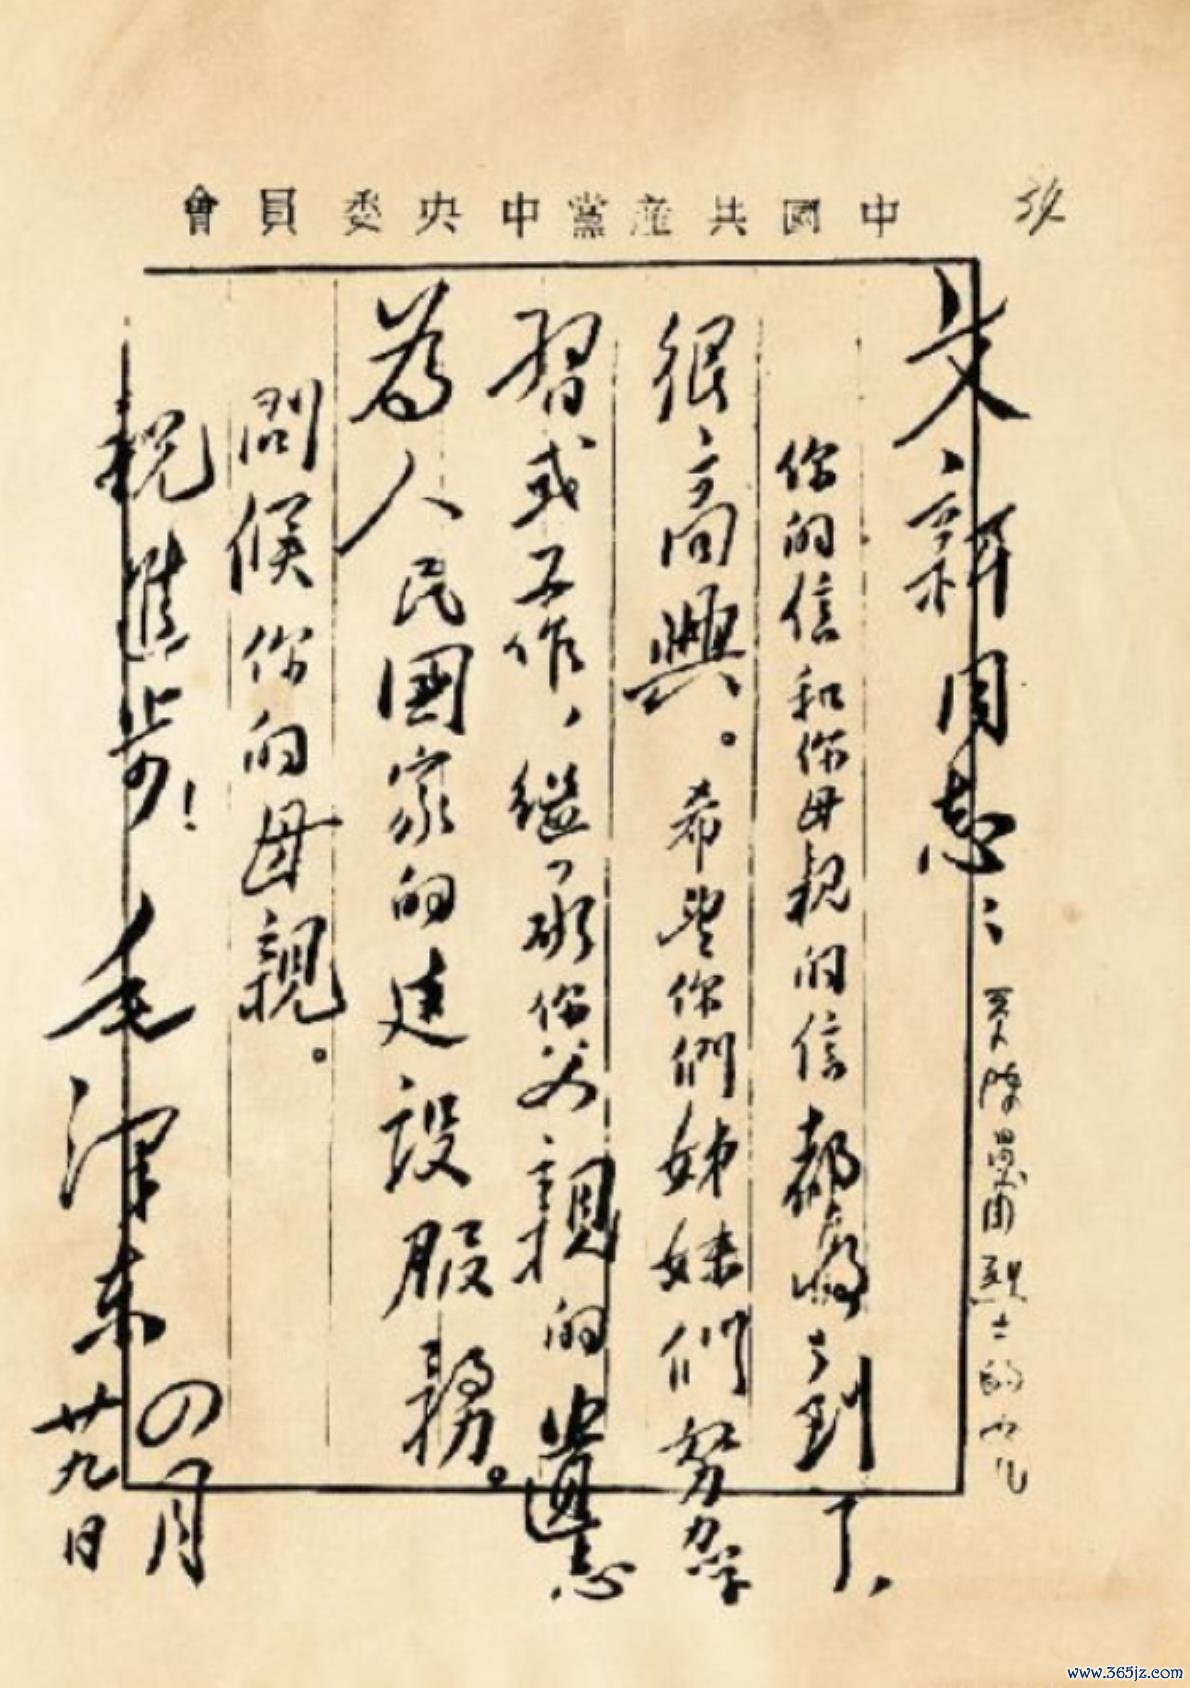 中國共產黨中央委員會
文新同志：
你的信和你母親的信都收到了，
很高興。希望你們姊妹們努力學
習或工作，繼承你父親的遺志
為人民國家的建設服務。
問候你的母親。
祝進步！
毛澤東
四月
廿九日
烈士的
www.365jz.com